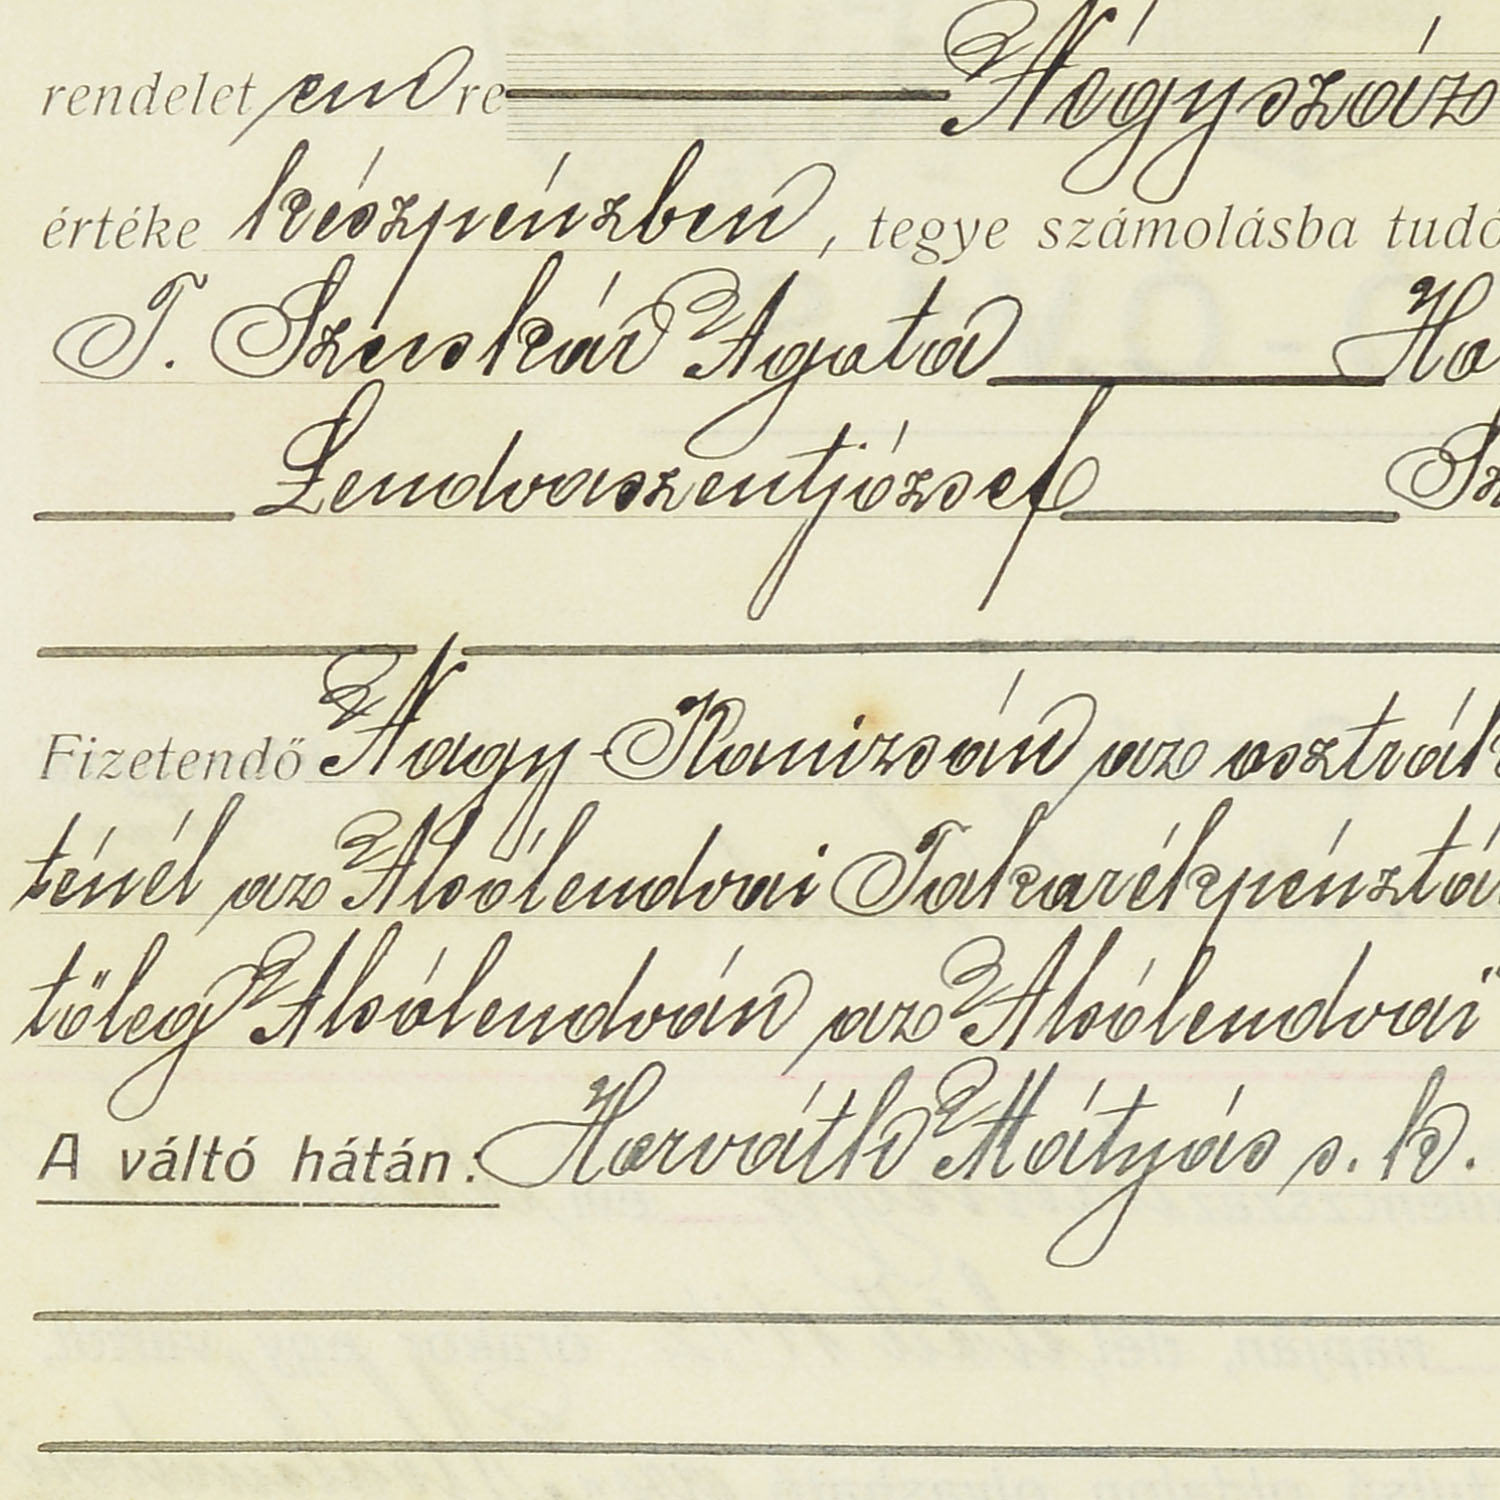 rendelet em re Négyszáz
értéke készpénzben, tegye számolásba tudó
T. Szenkár Agata Ho
Lendvaszentjózsef Sz
Fizetendő Nagy-Kanizsán az osztrák
ténél az Alsólendvai Takarékpénztá
tőleg Alsólendván az Alsólendvai
A váltó hátán: Horváth Mátyás s. k.